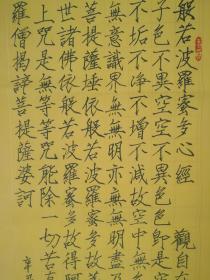 般若波羅蜜多心經 觀自
子色不異空空不異色色即是空
不垢不淨不增不減故空中無
無意識界無無明亦無無明盡乃
菩提薩埵依般若波羅蜜多故
世諸佛依般若波羅蜜多故得阿
上咒是無等等咒能除一切苦
羅僧揭諦菩提薩婆訶
辛